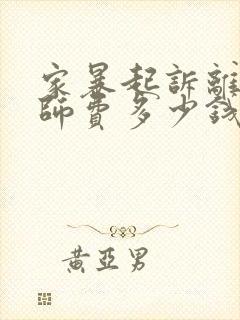 家暴起訴離
師費多少錢
黃亞男